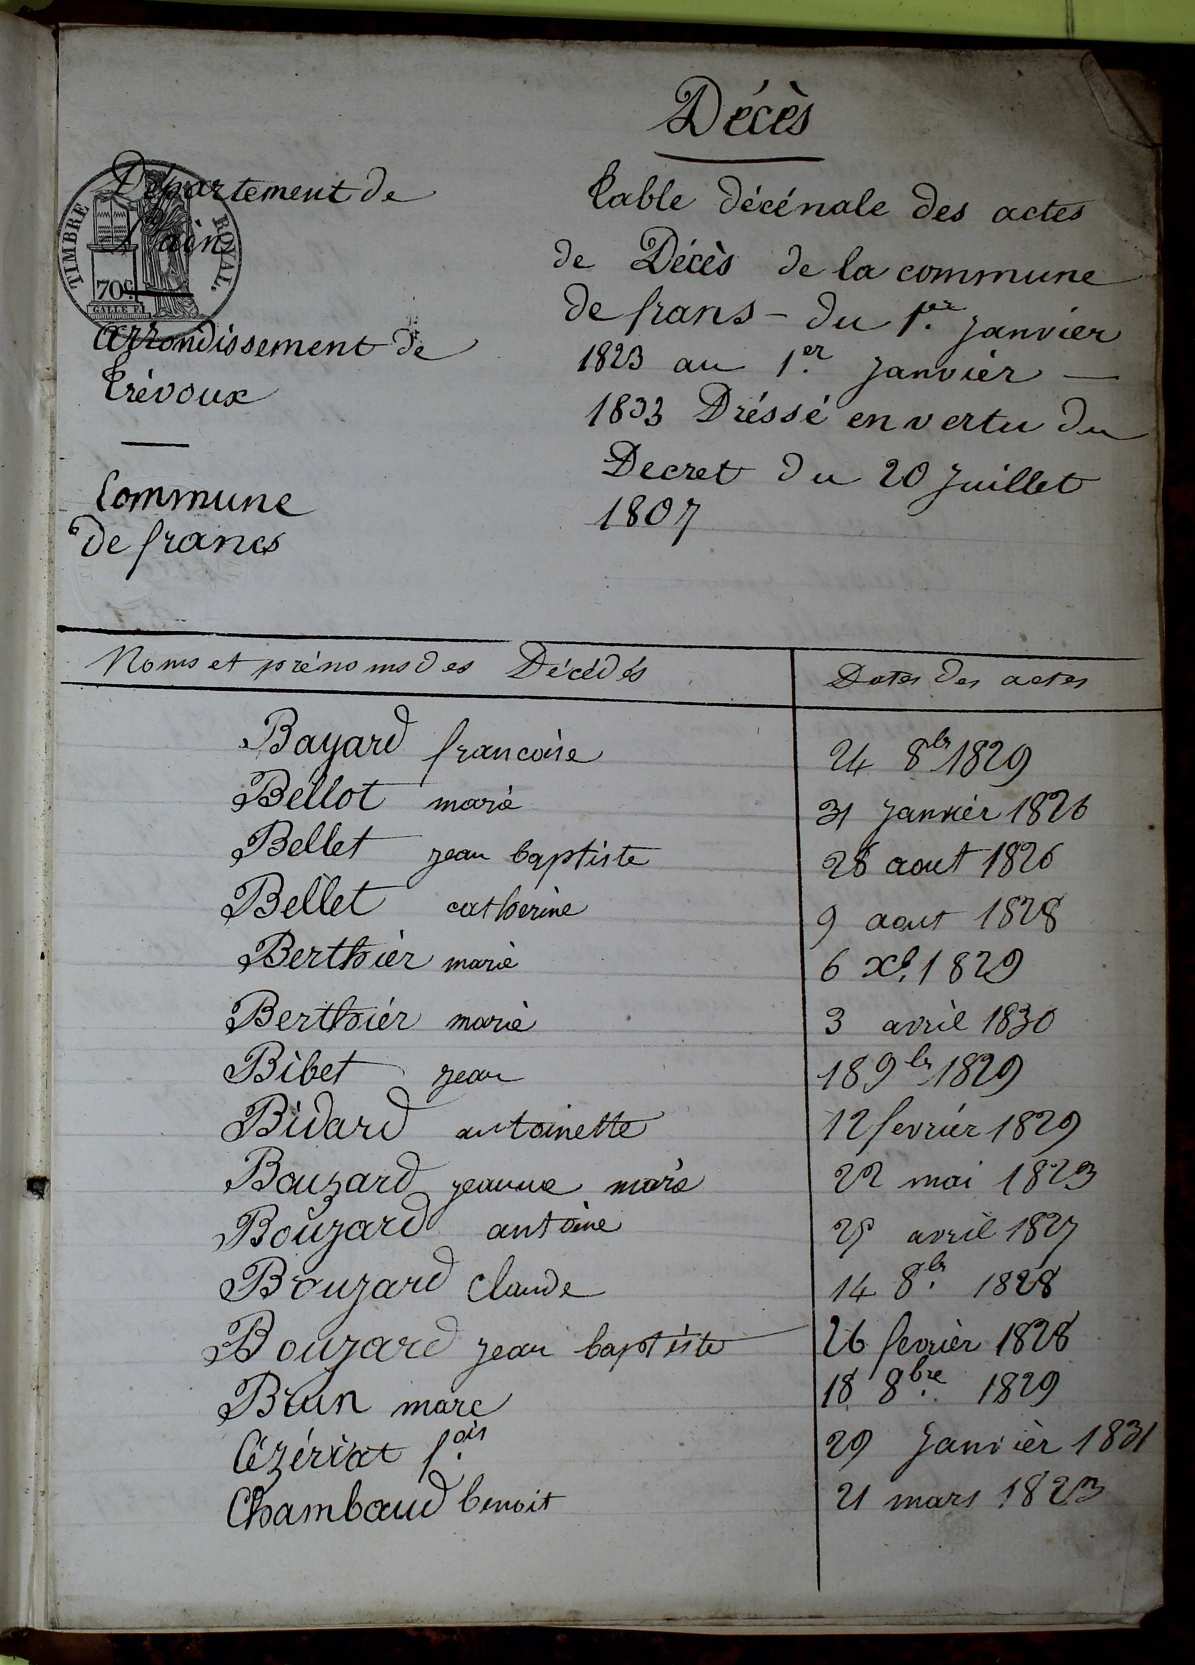 Décès
Département de
l'ain
TIMBRE ROYAL.
70c.
arrondissement de
trévoux
Commune
de francs
table décénale des actes
de Décès de la commune
de frans - du 1.er janvier
1823 au 1.er janvièr —
1833 Dréssé en vertu du
Decret du 20 juillet
1807
Noms et prénoms des Décédés
Dates des actes
Bayard francoise 24 8br 1829
Bellot marie 31 janvièr 1826
Bellet jean baptiste 28 aout 1826
Bellet catherine 9 aout 1828
Berthièr marie 6 Xb. 1829
Berthiér marie 3 avril 1830
Bibet jean 18 9br 1829
Bidard antoinette 12 fevriér 1829
Bouzard jeanne marie 22 mai 1823
Bouzard antoine avril 1827
Bouzard Claude 14 8br. 1828
Bouzard jean baptiste 26 fevrièr 1828
Brun marc 18 8bre. 1829
Cézériat f.ois 29 janvièr 1831
Chambaud benoit 21 mars 1823